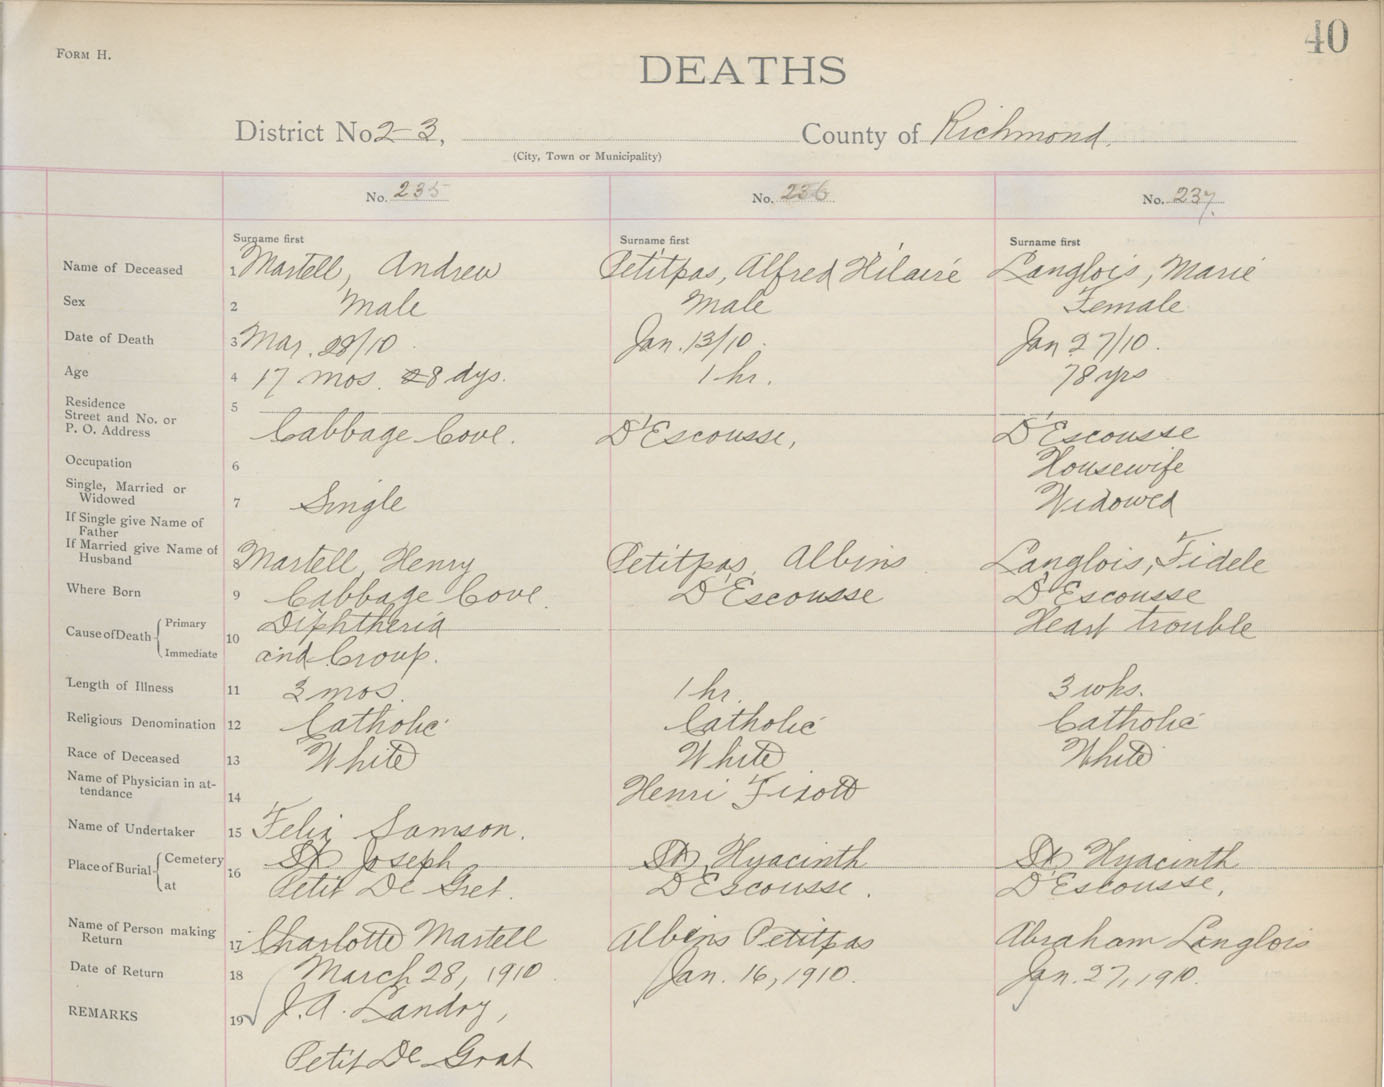 40
FORM H.
DEATHS
District No. 2-3, County of Richmond.
(City, Town or Municipality)
No. 235 No. 236 No. 237.
Surname first Surname first Surname first
Name of Deceased 1 Martell, Andrew Petitpas, Alfred Hilaire Langlois, Marie
Sex 2 Male Male Female
Date of Death 3 Mar. 28/10. Jan. 13/10. Jan 27/10.
Age 4 17 mos. 28 dys. 1 hr. 78 yrs
Residence 5
Street and No. or
P. O. Address Cabbage Cove. D'Escousse, D'Escousse
Occupation 6 Housewife
Single, Married or
Widowed 7 Single Widowed
If Single give Name of
Father
If Married give Name of
Husband 8 Martell, Henry Petitpas, Albins Langlois, Fidele
Where Born 9 Cabbage Cove. D'Escousse D'Escousse
Cause of Death Primary 10 Diphtheria Heart trouble
Immediate and Croup.
Length of Illness 11 3 mos. 1 hr. 3 wks.
Religious Denomination 12 Catholic Catholic Catholic
Race of Deceased 13 White White White
Name of Physician in at-
tendance 14 Henri Fixott
Name of Undertaker 15 Felix Samson.
Place of Burial Cemetery 16 St Joseph St, Hyacinth St, Hyacinth
at Petit De Gret. D'Escousse. D'Escousse,
Name of Person making
Return 17 Charlotte Martell Albins Petitpas Abraham Langlois
Date of Return 18 March 28, 1910 Jan. 16, 1910. Jan. 27, 1910.
REMARKS 19 J. A. Landry,
Petit De Grat